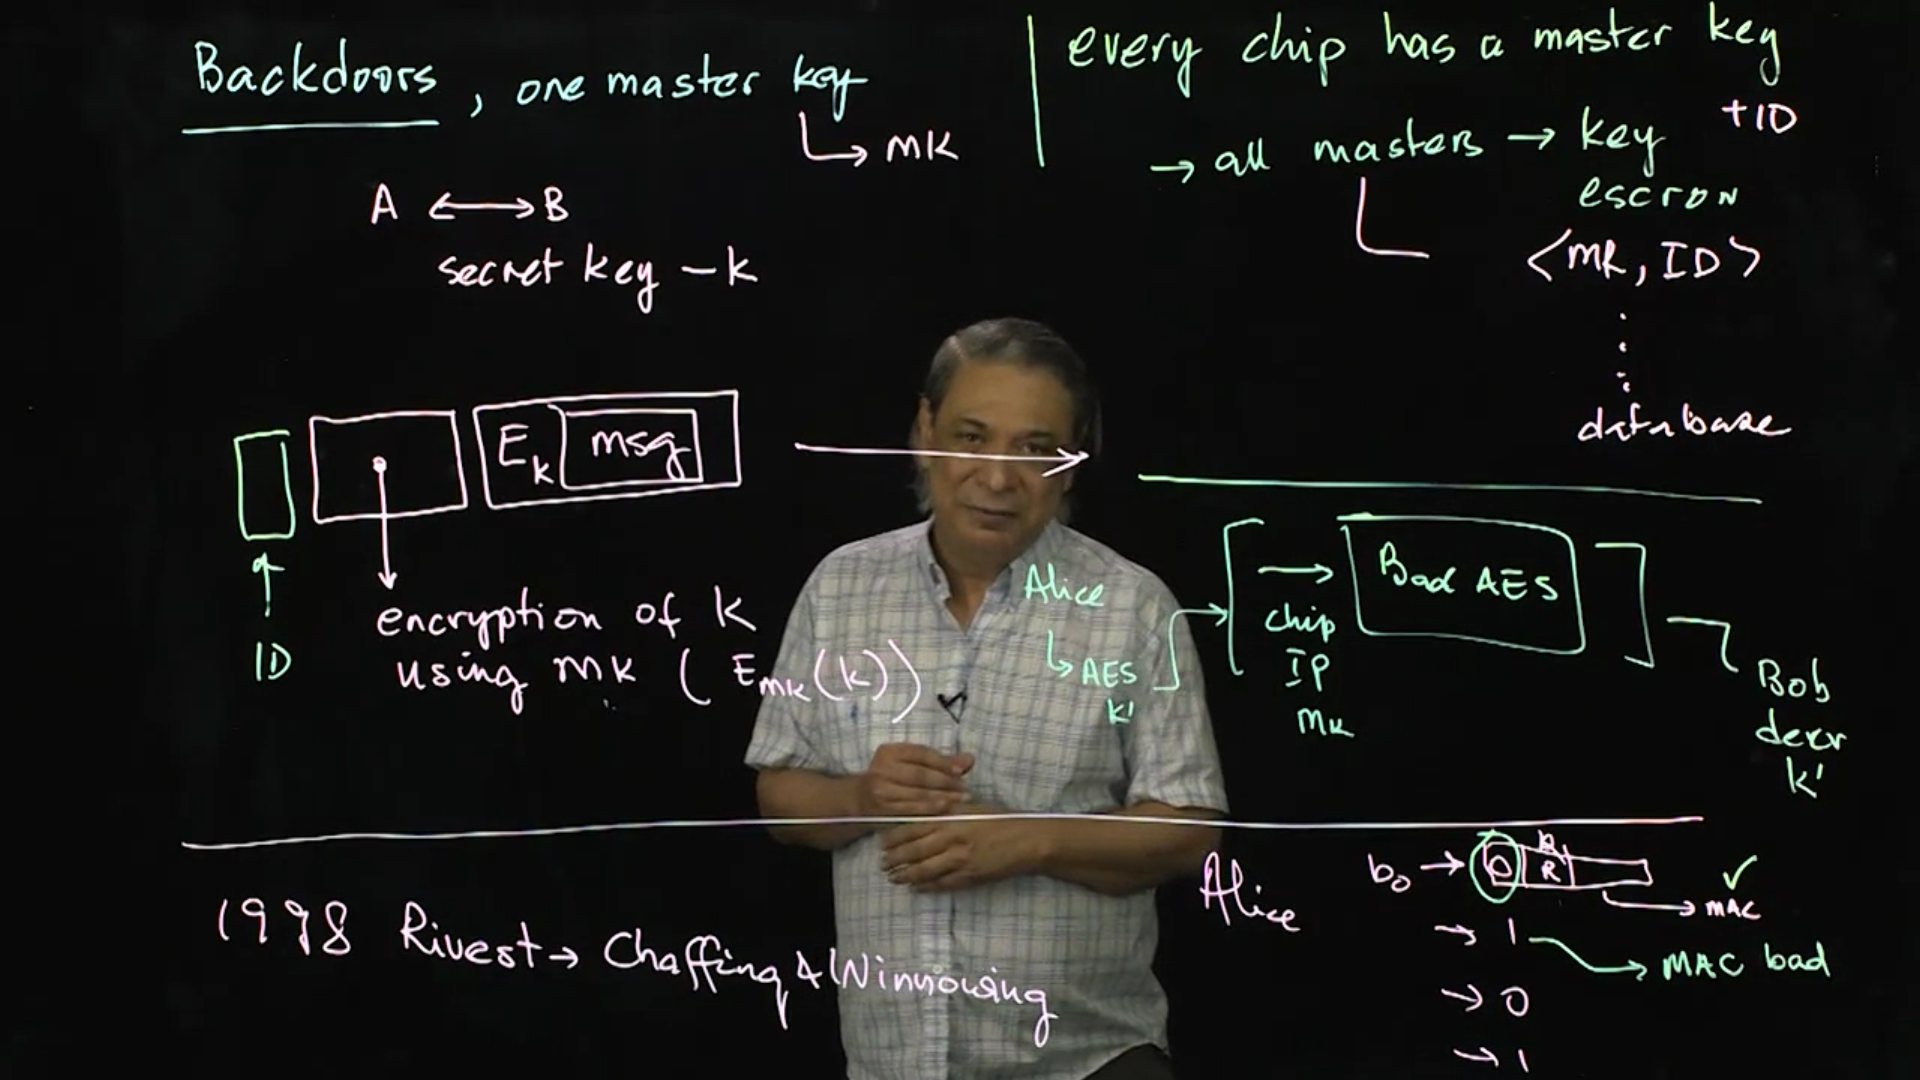 Backdoors, one master key
↳ MK
A ↔ B
secret key - k
E_k [msg]
ID
encryption of k
using MK ( E_MK(k) )
every chip has a master key
+ ID
→ all masters → key
escrow
<MK, ID>
database
Alice
↳ AES
k'
→
chip
IP
MK
Bad AES
Bob
decr
k'
1998 Rivest → Chaffing & Winnowing
Alice
b₀ → 0 R → MAC ✓
→ 1 → MAC bad
→ 0
→ 1